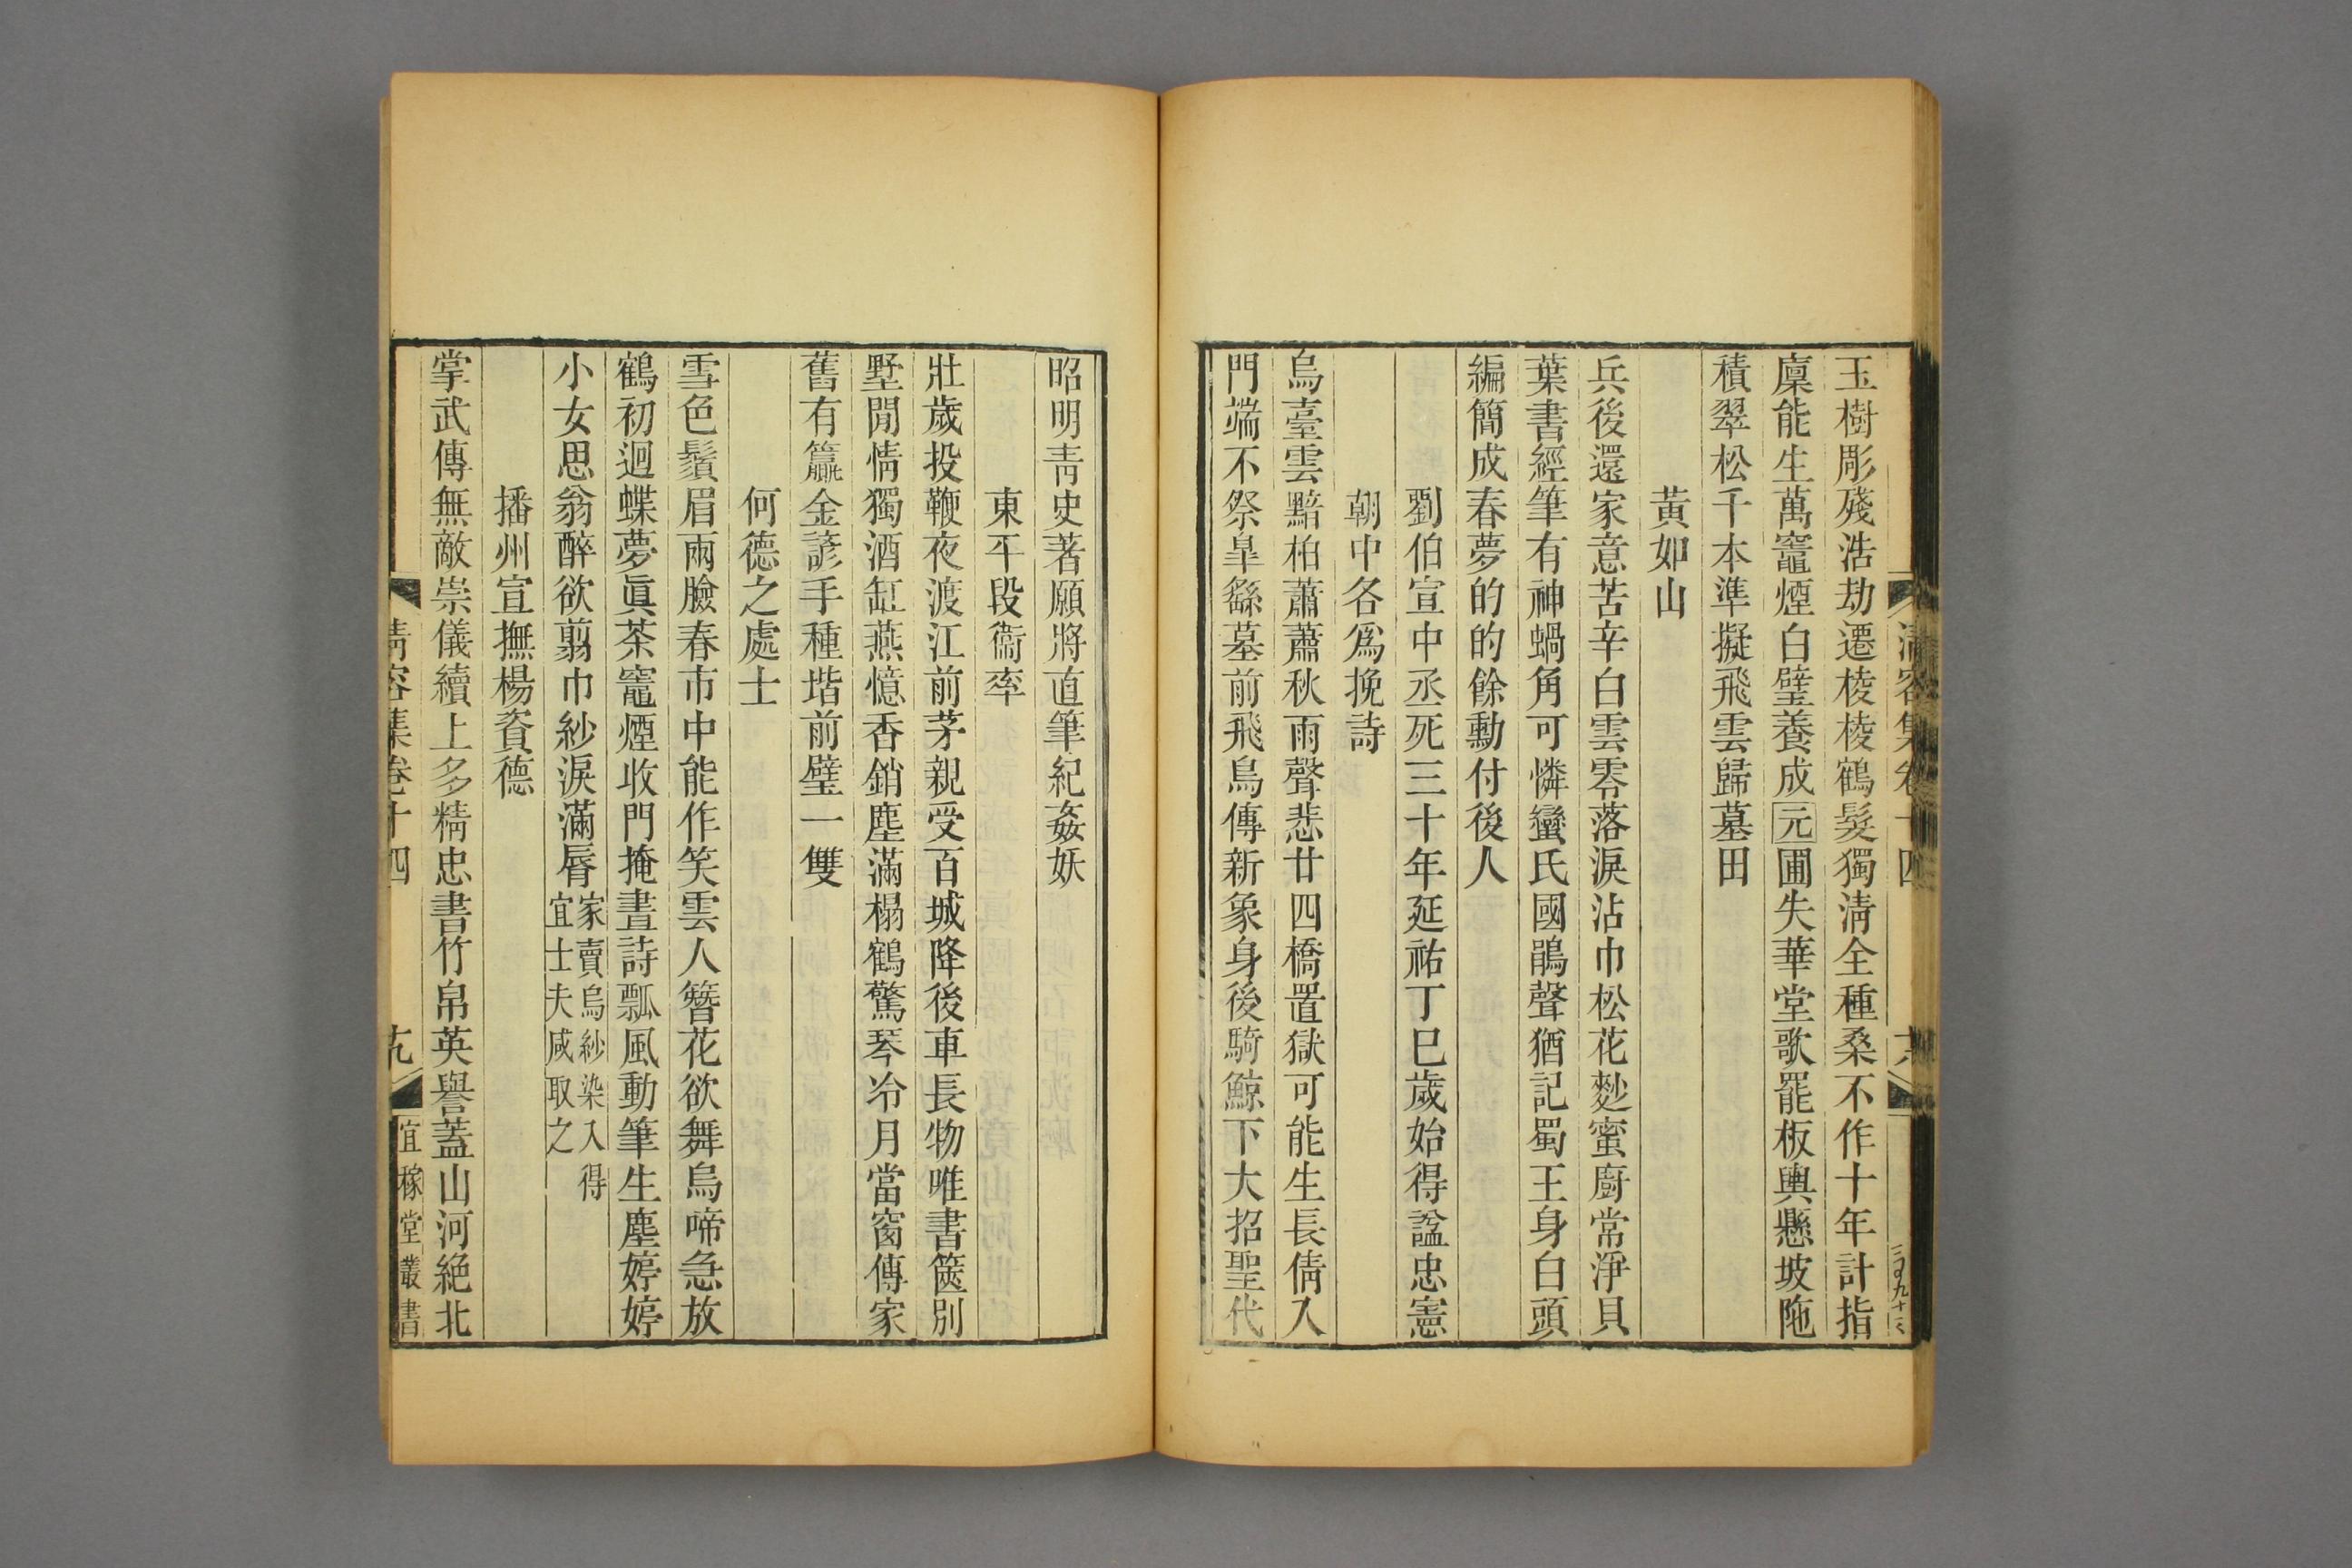 清容集卷十四
十八
玉樹彫殘浩劫遷棱棱鶴髮獨淸全種桑不作十年計指
廩能生萬竈煙白璧養成元圃失華堂歌罷板輿懸坡陁
積翠松千本準擬飛雲歸墓田
黃如山
兵後還家意苦辛白雲零落淚沾巾松花麨蜜廚常淨貝
葉書經筆有神蝸角可憐蠻氏國鵑聲猶記蜀王身白頭
編簡成春夢的的餘勳付後人
劉伯宣中丞死三十年延祐丁巳歲始得諡忠憲
朝中各爲挽詩
烏臺雲黯柏蕭蕭秋雨聲悲廿四橋置獄可能生長倩入
門端不祭皐繇墓前飛鳥傳新象身後騎鯨下大招聖代
昭明靑史著願將直筆紀姦妖
東平段衞率
壯歲投鞭夜渡江前茅親受百城降後車長物唯書篋別
墅閒情獨酒缸燕憶香銷塵滿榻鶴驚琴冷月當窗傳家
舊有籯金諺手種堦前璧一雙
何德之處士
雪色鬚眉兩臉春市中能作笑雲人簪花欲舞烏啼急放
鶴初迴蝶夢眞茶竈煙收門掩晝詩瓢風動筆生塵婷婷
小女思翁醉欲翦巾紗淚滿脣家賣烏紗染入得
宜士夫咸取之
播州宣撫楊資德
掌武傳無敵崇儀續上多精忠書竹帛英譽蓋山河絶北
清容集卷十四
十九
宜稼堂叢書